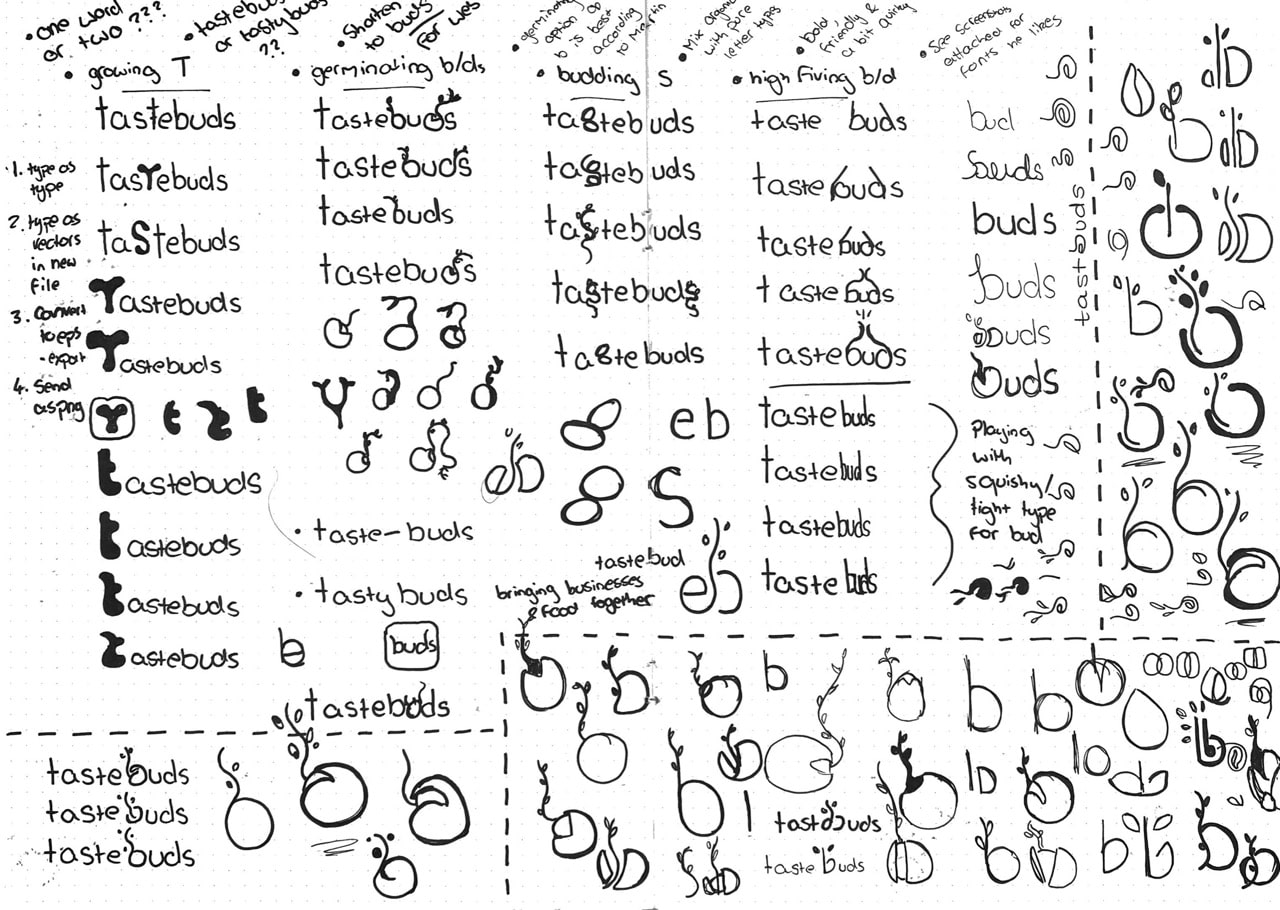 • one word
or two ???
• tastebuds
or tastybuds
??
• Shorten
to buds
for web
• germinating
option on
b is best
according
to Martin
• Mix organic
with pure
letter types
• bold
friendly &
a bit quirky
• See screenshots
attached for
fonts he likes
• growing T
tastebuds
tasTebuds
taStebuds
Tastebuds
Tastebuds
t
tastebuds
tastebuds
tastebuds
tastebuds
1. type as
type
2. type as
vectors
in new
file
3. Convert
to eps
- export
4. Send
as png
• germinating b/ds
tastebuds
tastebuds
tastebuds
tastebuds
• taste-buds
• tastybuds
buds
tastebuds
• budding s
tastebuds
tastebuds
tastebuds
tastebuds
tastebuds
eb
S
tastebud
eb
bringing businesses
& food together
• high fiving b/d
taste buds
tastebuds
tastebuds
tastebuds
tastebuds
tastebuds
tastebuds
tastebuds
taste buds
bud
buds
buds
buds
buds
Playing
with
squishy/
tight type
for bud
tastbuds
b
tastebuds
tastebuds
tastebuds
b
tastbuds
tastebuds